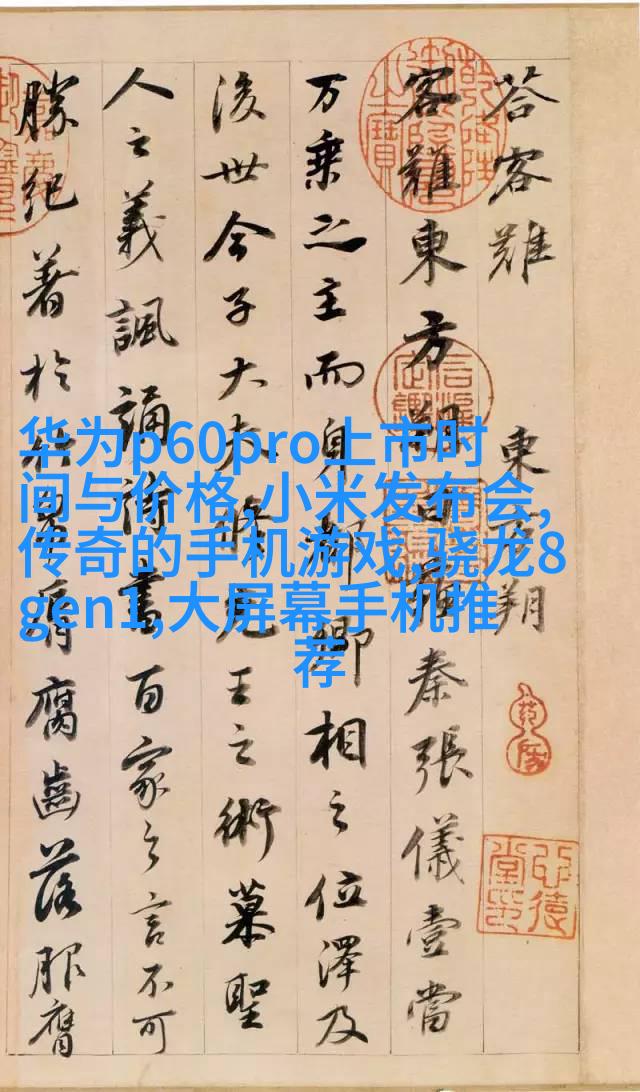 荅客難 東方朔
客難東方朔曰蘇秦張儀壹當
万乘之主而身都卿相之位澤及
後世今子大夫脩先王之術慕聖
人之義諷誦詩書百家之言不可
勝紀著於竹帛脣腐齒落服膺
华为p60pro上市时
间与价格,小米发布会,
传奇的手机游戏,骁龙8
gen1,大屏幕手机推
荐